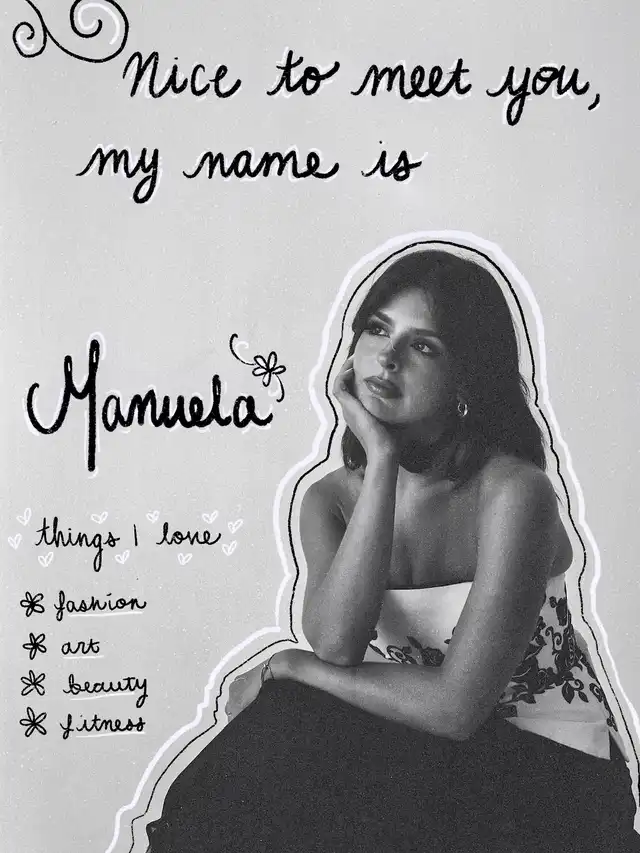 Nice to meet you,
my name is
Manuela
things I love
fashion
art
beauty
fitness